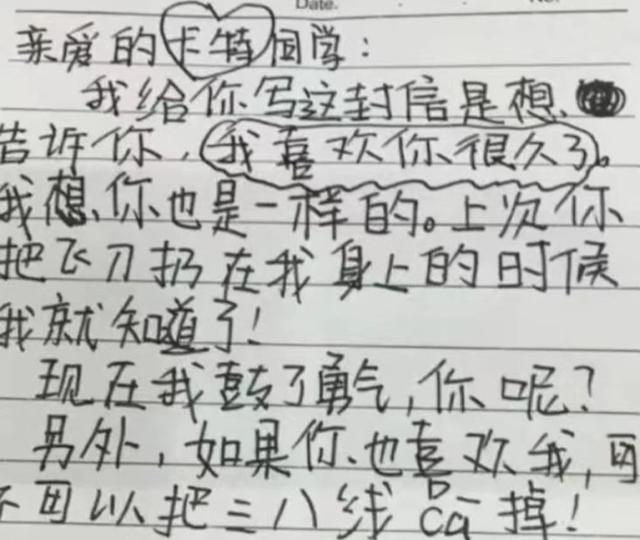 Date.
No.
亲爱的卡特同学：
我给你写这封信是想
告诉你，我喜欢你很久了。
我想，你也是一样的。上次你
把飞刀扔在我身上的时候
我就知道了！
现在我鼓了勇气，你呢？
另外，如果你也喜欢我，可
不可以把三八线 ca 掉！